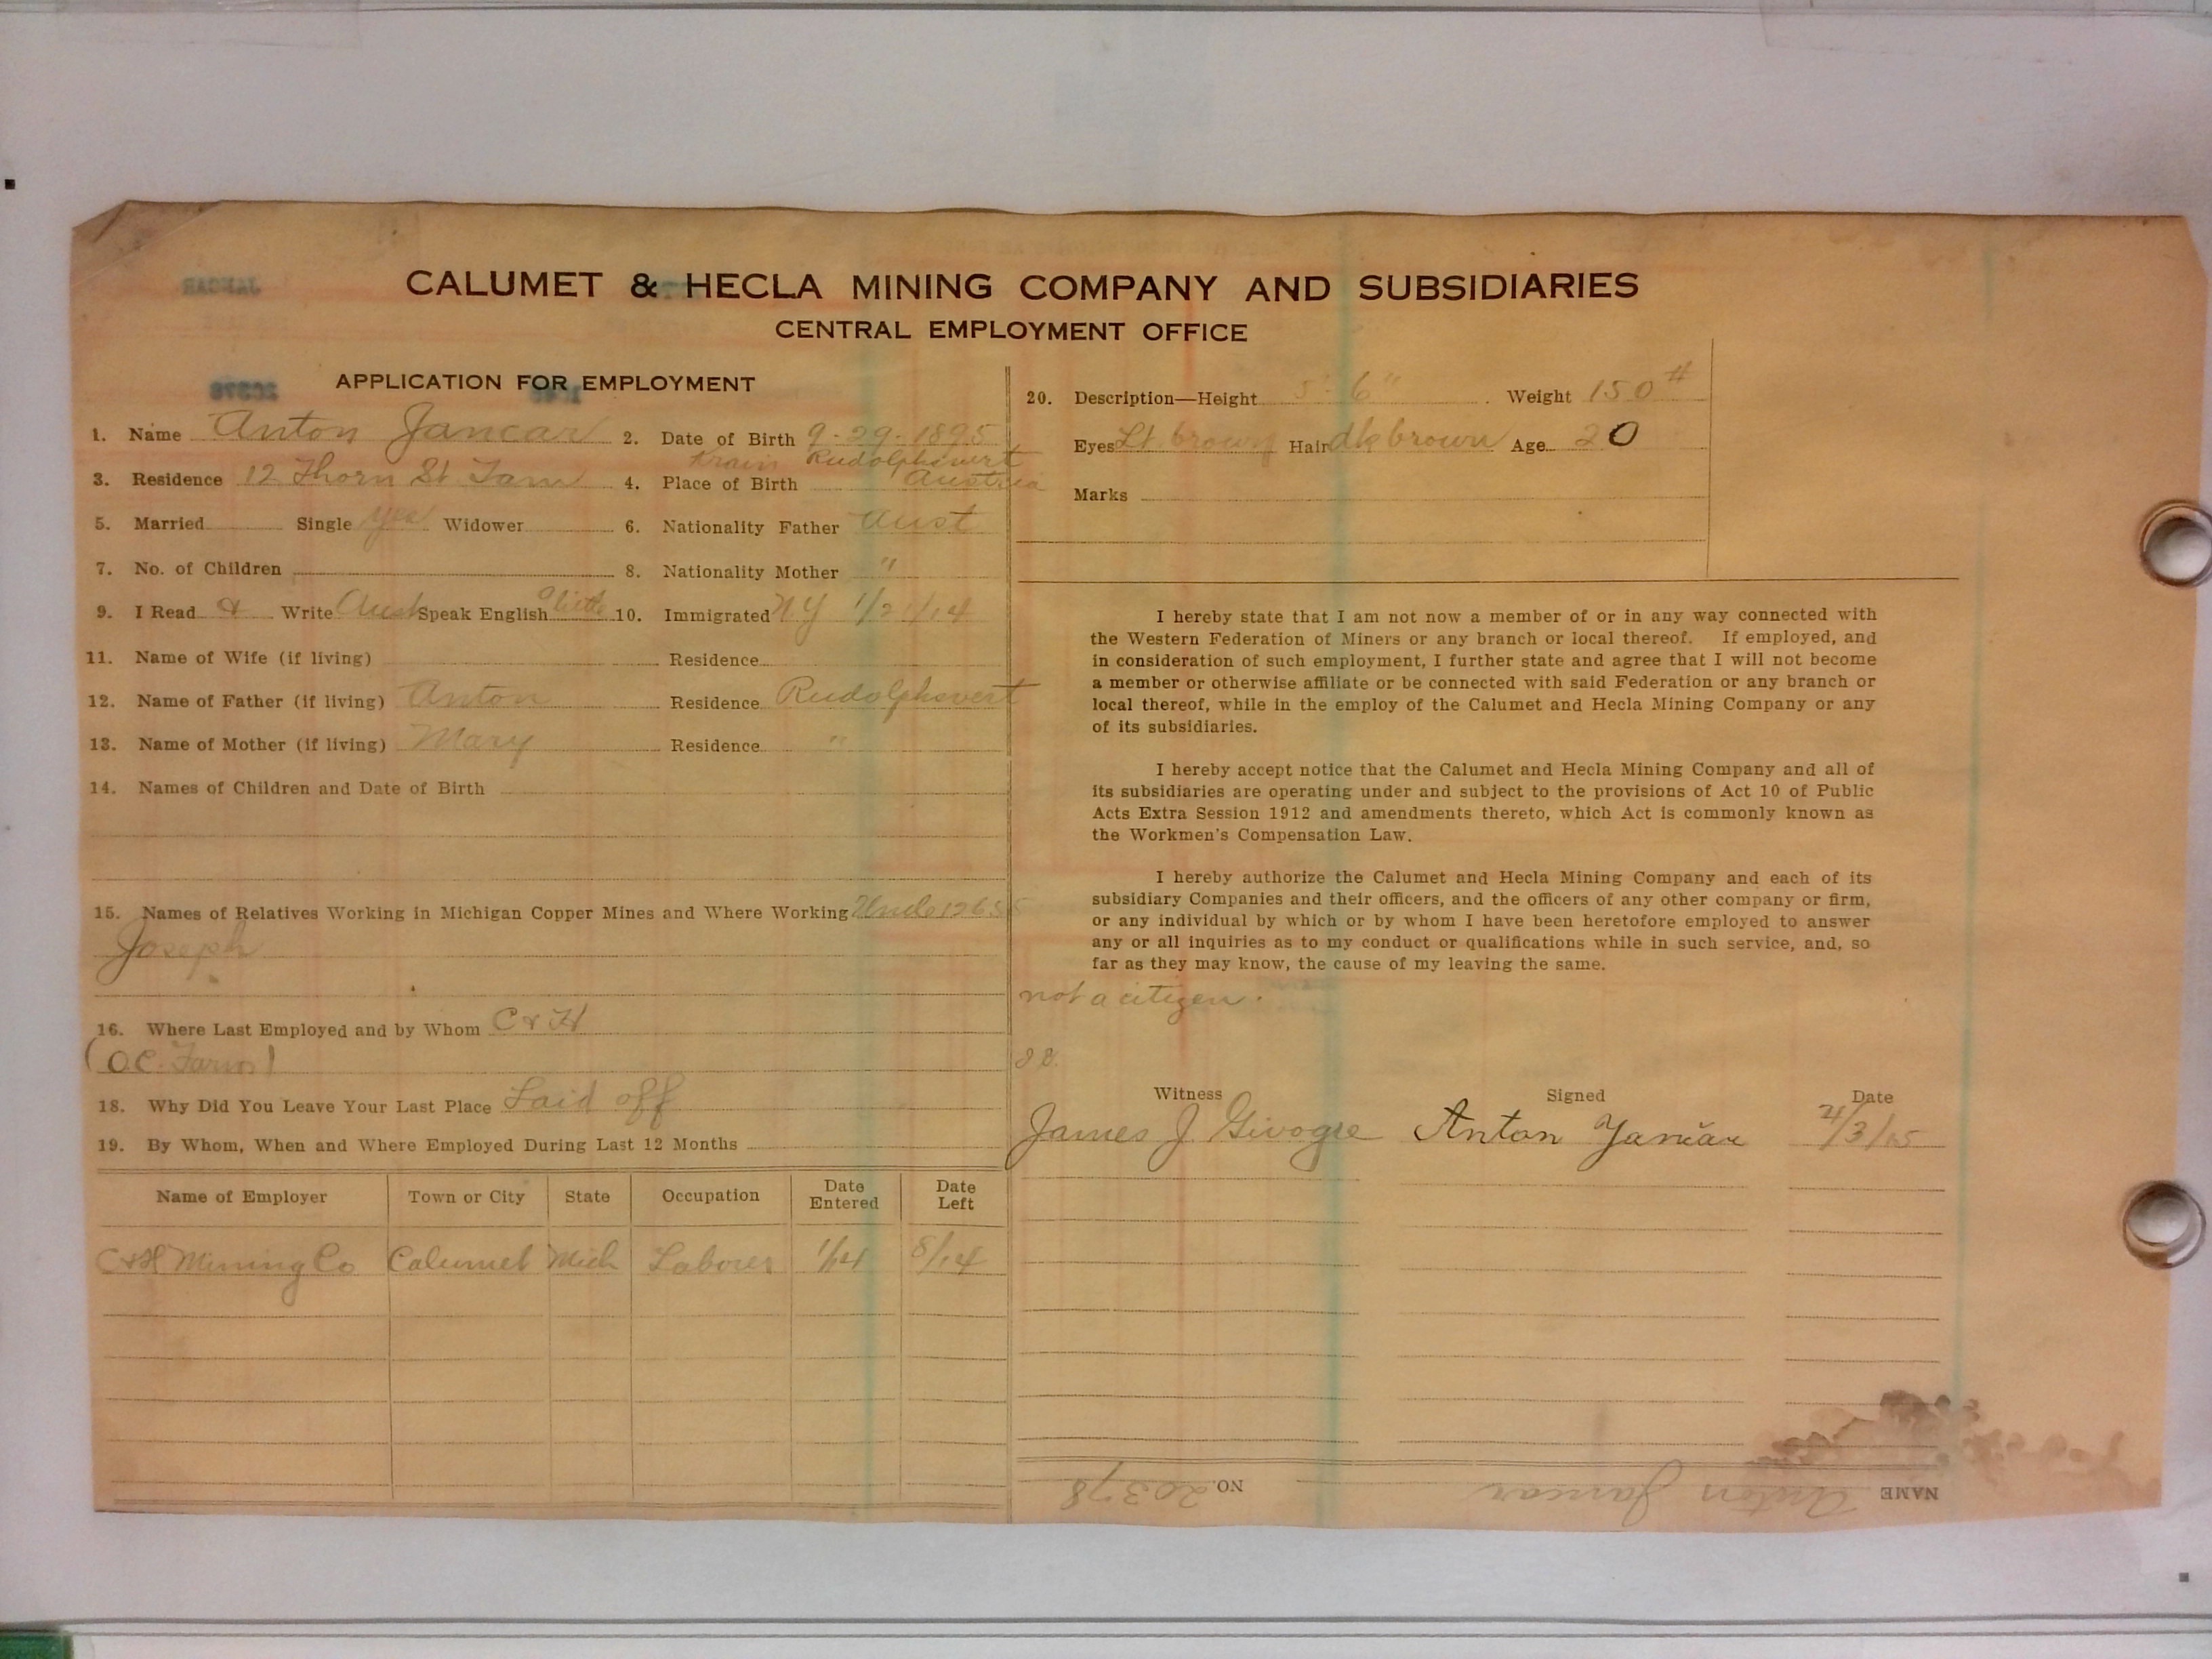 CALUMET & HECLA MINING COMPANY AND SUBSIDIARIES
CENTRAL EMPLOYMENT OFFICE
APPLICATION FOR EMPLOYMENT
1. Name Anton Jancar 2. Date of Birth 9-29-1895
Krain Rudolphswert
3. Residence 12 Thorn St Tam 4. Place of Birth Austria
5. Married Single yes Widower 6. Nationality Father Aust
7. No. of Children 8. Nationality Mother "
9. I Read & Write Aust Speak English a little 10. Immigrated N.Y 1/21/14
11. Name of Wife (if living) Residence
12. Name of Father (if living) Anton Residence Rudolphswert
13. Name of Mother (if living) Mary Residence "
14. Names of Children and Date of Birth
15. Names of Relatives Working in Michigan Copper Mines and Where Working Uncle
Joseph
16. Where Last Employed and by Whom C & H
(O.C. )
18. Why Did You Leave Your Last Place Laid off
19. By Whom, When and Where Employed During Last 12 Months
Name of Employer Town or City State Occupation Date Entered Date Left
C&H Mining Co Calumet Mich Laborer 1/14 8/14
20. Description—Height 5' 6" Weight 150 #
Eyes Lt. brown Hair dk brown Age 20
Marks
I hereby state that I am not now a member of or in any way connected with
the Western Federation of Miners or any branch or local thereof. If employed, and
in consideration of such employment, I further state and agree that I will not become
a member or otherwise affiliate or be connected with said Federation or any branch or
local thereof, while in the employ of the Calumet and Hecla Mining Company or any
of its subsidiaries.
I hereby accept notice that the Calumet and Hecla Mining Company and all of
its subsidiaries are operating under and subject to the provisions of Act 10 of Public
Acts Extra Session 1912 and amendments thereto, which Act is commonly known as
the Workmen's Compensation Law.
I hereby authorize the Calumet and Hecla Mining Company and each of its
subsidiary Companies and their officers, and the officers of any other company or firm,
or any individual by which or by whom I have been heretofore employed to answer
any or all inquiries as to my conduct or qualifications while in such service, and, so
far as they may know, the cause of my leaving the same.
not a citizen.
Witness Signed Date
James J. Anton Jančar 4/3/15
NAME Anton Jancar NO. 20378